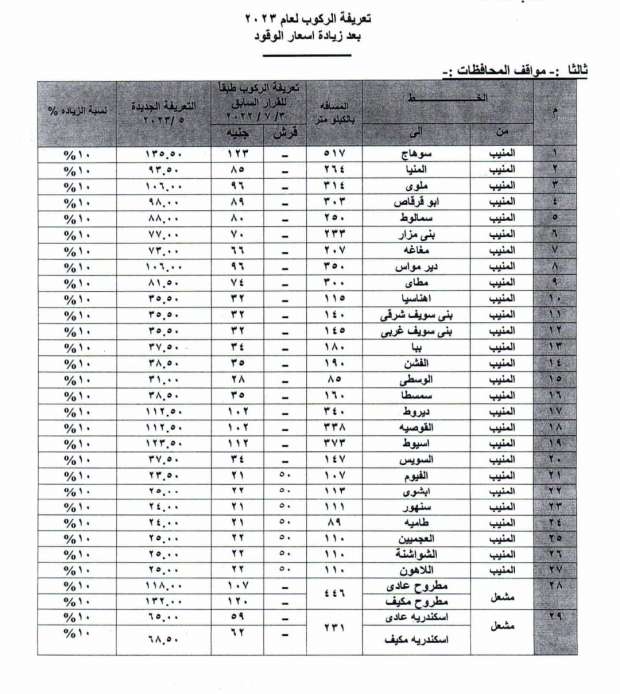 تعريفة الركوب لعام ٢٠٢٣
بعد زيادة اسعار الوقود
ثالثا :- مواقف المحافظات :-
م الخط المسافه بالكيلو متر تعريفة الركوب طبقا للقرار السابق ٢٠٢٢/٧/٣ التعريفة الجديدة ٢٠٢٣/٥ نسبة الزياده %
من الى قرش جنيه
١ المنيب سوهاج ٥١٧ – ١٢٣ ١٣٥.٥٠ ١٠%
٢ المنيب المنيا ٢٦٤ – ٨٥ ٩٣.٥٠ ١٠%
٣ المنيب ملوى ٣١٤ – ٩٦ ١٠٦.٠٠ ١٠%
٤ المنيب ابو قرقاص ٣٠٣ – ٨٩ ٩٨.٠٠ ١٠%
٥ المنيب سمالوط ٢٥٠ – ٨٠ ٨٨.٠٠ ١٠%
٦ المنيب بنى مزار ٢٣٣ – ٧٠ ٧٧.٠٠ ١٠%
٧ المنيب مغاغه ٢٠٧ – ٦٦ ٧٣.٠٠ ١٠%
٨ المنيب دير مواس ٣٥٠ – ٩٦ ١٠٦.٠٠ ١٠%
٩ المنيب مطاى ٣٠٠ – ٧٤ ٨١.٥٠ ١٠%
١٠ المنيب اهناسيا ١١٥ – ٣٢ ٣٥.٥٠ ١٠%
١١ المنيب بنى سويف شرقي ١٤٠ – ٣٢ ٣٥.٥٠ ١٠%
١٢ المنيب بنى سويف غربى ١٤٥ – ٣٢ ٣٥.٥٠ ١٠%
١٣ المنيب ببا ١٨٠ – ٣٤ ٣٧.٥٠ ١٠%
١٤ المنيب الفشن ١٩٠ – ٣٥ ٣٨.٥٠ ١٠%
١٥ المنيب الوسطى ٨٥ – ٢٨ ٣١.٠٠ ١٠%
١٦ المنيب سمسطا ١٦٠ – ٣٥ ٣٨.٥٠ ١٠%
١٧ المنيب ديروط ٣٤٠ – ١٠٢ ١١٢.٥٠ ١٠%
١٨ المنيب القوصيه ٣٣٨ – ١٠٢ ١١٢.٥٠ ١٠%
١٩ المنيب اسيوط ٣٧٣ – ١١٢ ١٢٣.٥٠ ١٠%
٢٠ المنيب السويس ١٤٧ – ٣٤ ٣٧.٥٠ ١٠%
٢١ المنيب الفيوم ١٠٧ ٥٠ ٢١ ٢٣.٥٠ ١٠%
٢٢ المنيب ابشوى ١١٣ ٥٠ ٢٢ ٢٥.٠٠ ١٠%
٢٣ المنيب سنهور ١١١ ٥٠ ٢١ ٢٤.٠٠ ١٠%
٢٤ المنيب طاميه ٨٩ ٥٠ ٢١ ٢٤.٠٠ ١٠%
٢٥ المنيب العجميين ١١٠ ٥٠ ٢٢ ٢٥.٠٠ ١٠%
٢٦ المنيب الشواشنة ١١٠ ٥٠ ٢٢ ٢٥.٠٠ ١٠%
٢٧ المنيب اللاهون ١١٠ ٥٠ ٢٢ ٢٥.٠٠ ١٠%
٢٨ مشعل مطروح عادى ٤٤٦ – ١٠٧ ١١٨.٠٠ ١٠%
مطروح مكيف – ١٢٠ ١٣٢.٠٠ ١٠%
٢٩ مشعل اسكندريه عادى ٢٣١ – ٥٩ ٦٥.٠٠ ١٠%
اسكندريه مكيف – ٦٢ ٦٨.٥٠ ١٠%